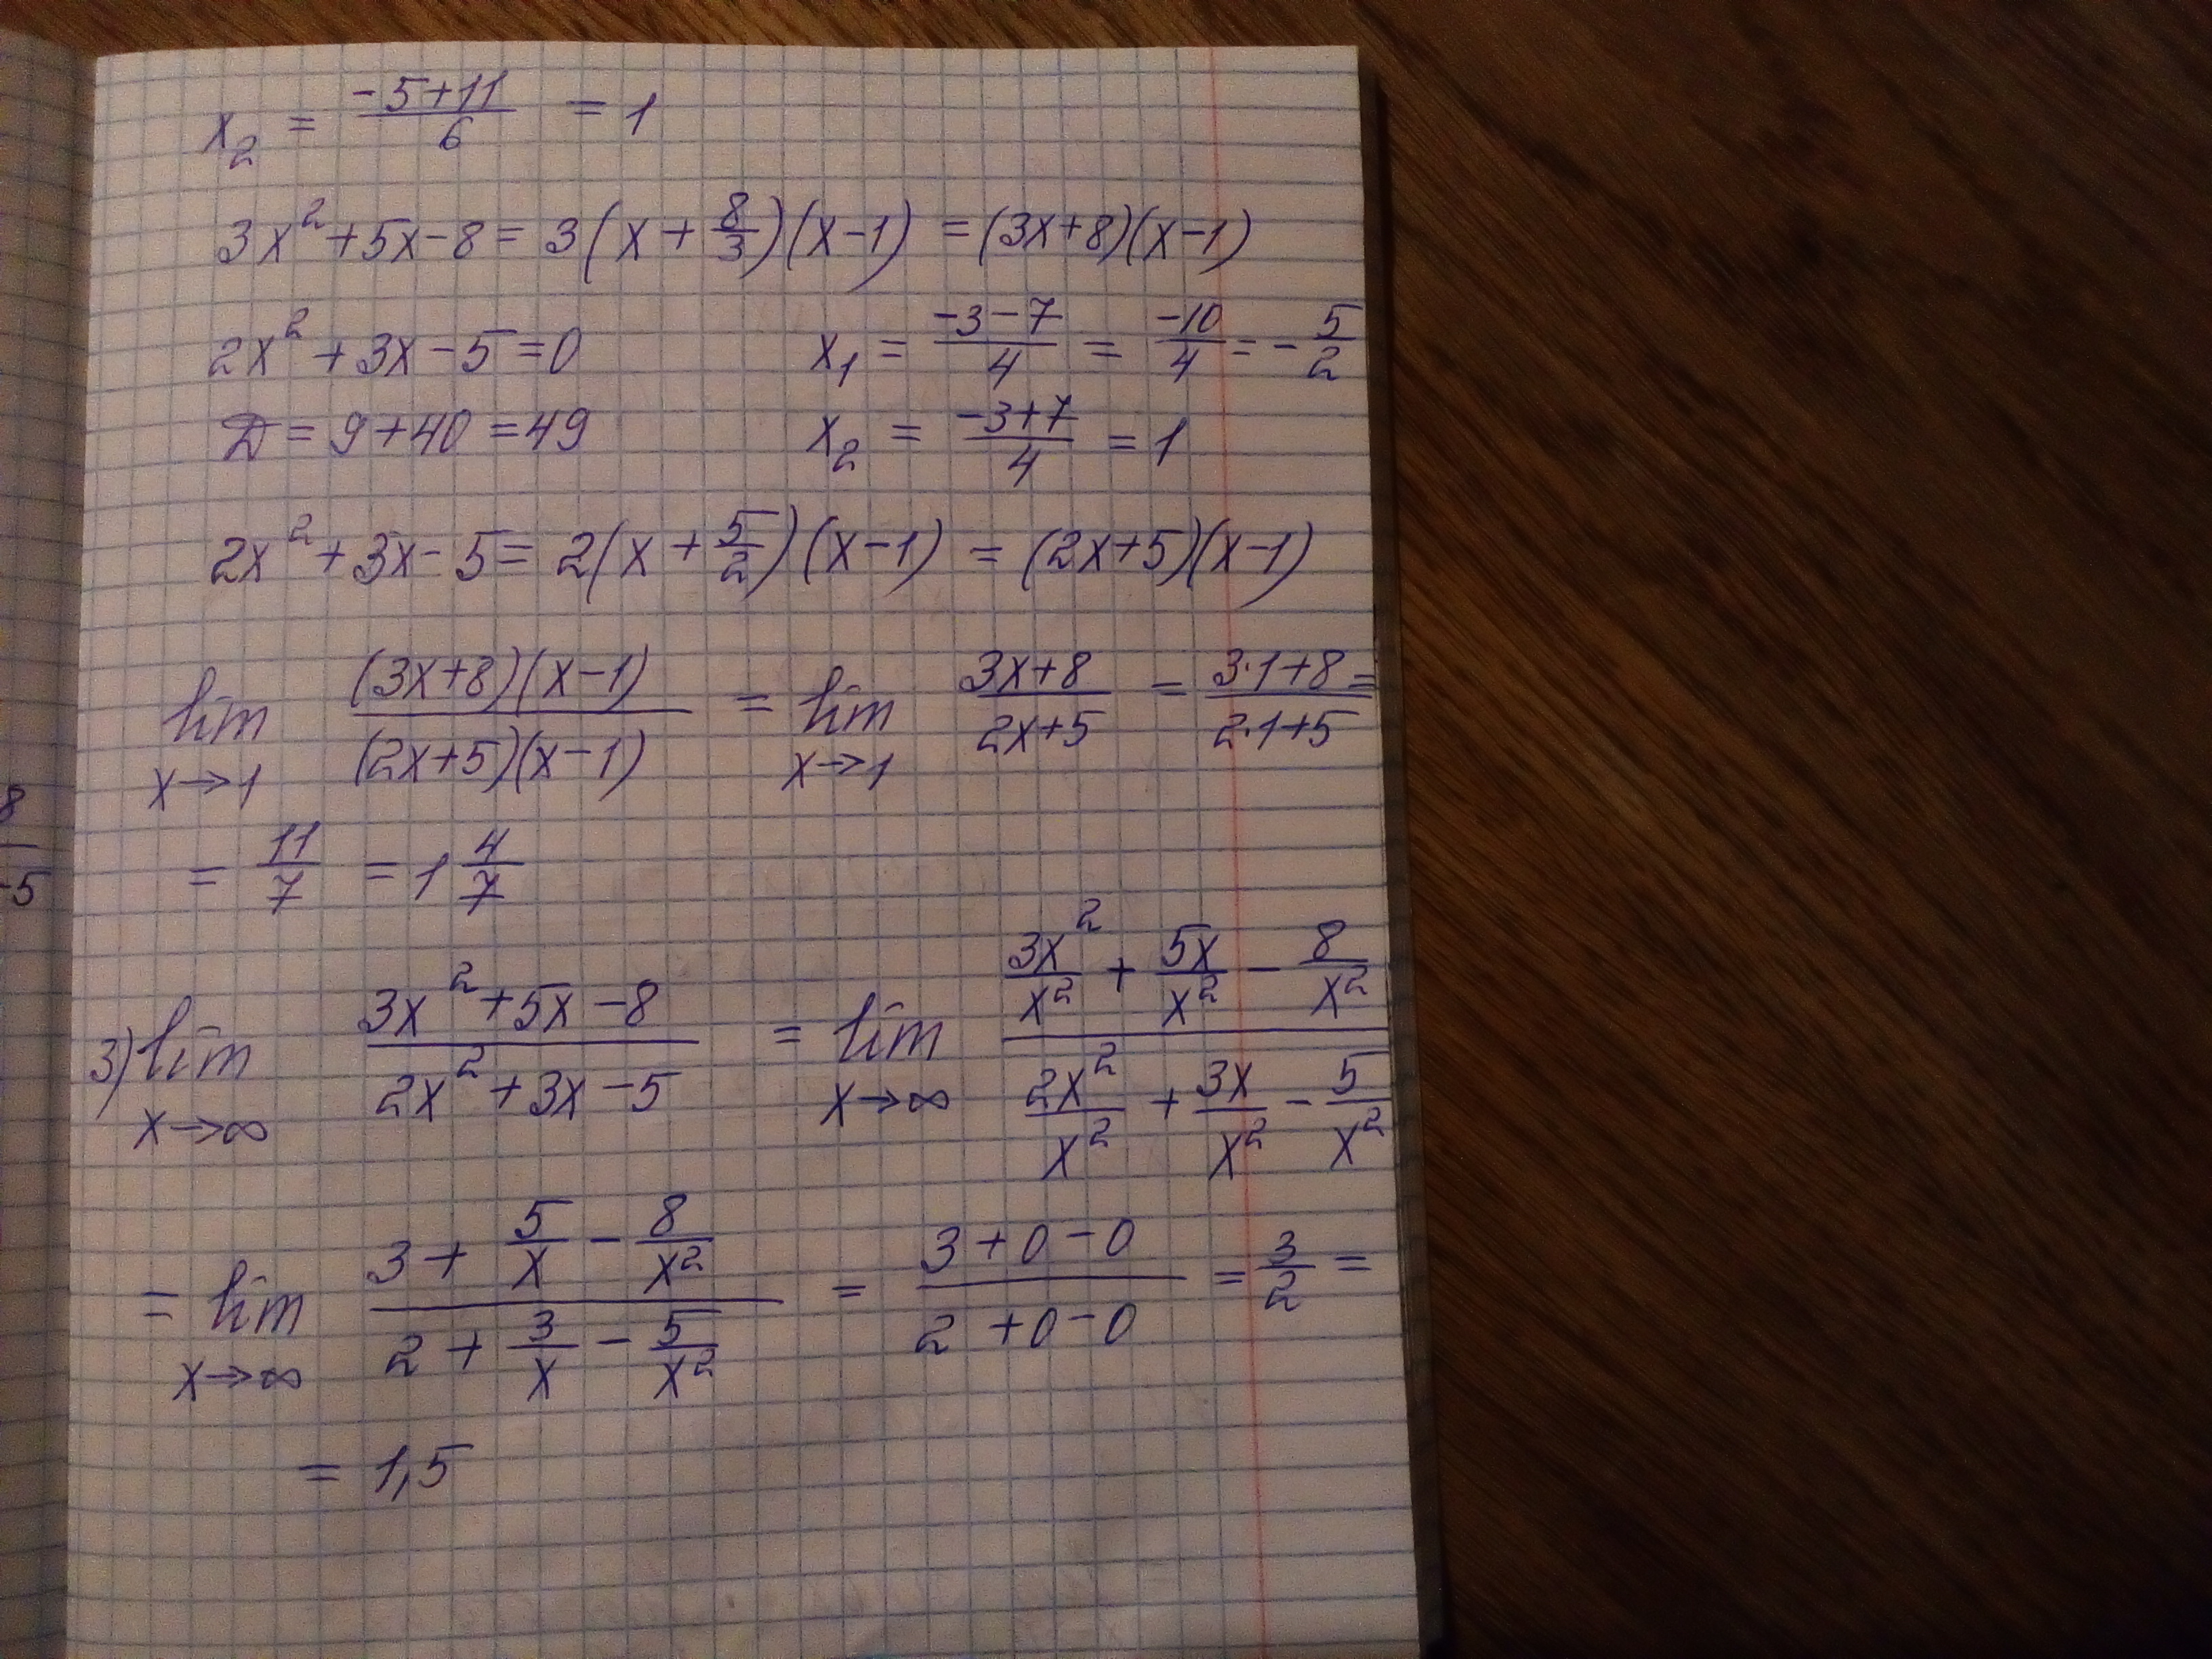 x₂ = (-5+11)/6 = 1
3x²+5x-8 = 3(x + 8/3)(x-1) = (3x+8)(x-1)
2x² + 3x - 5 = 0    x₁ = (-3-7)/4 = -10/4 = -5/2
D = 9+40 = 49    x₂ = (-3+7)/4 = 1
2x² + 3x - 5 = 2(x + 5/2)(x-1) = (2x+5)(x-1)
lim x→1 ((3x+8)(x-1))/((2x+5)(x-1)) = lim x→1 (3x+8)/(2x+5) = (3·1+8)/(2·1+5) =
8
-5
= 11/7 = 1 4/7
3) lim x→∞ (3x²+5x-8)/(2x²+3x-5) = lim x→∞ (3x²/x² + 5x/x² - 8/x²)/(2x²/x² + 3x/x² - 5/x²)
= lim x→∞ (3 + 5/x - 8/x²)/(2 + 3/x - 5/x²) = (3+0-0)/(2+0-0) = 3/2 =
= 1,5